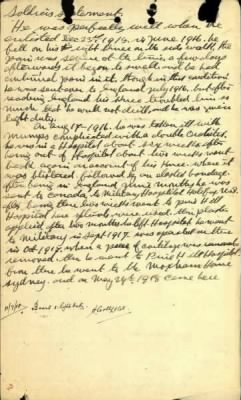 Soldier's Statement.
He was perfectly well when he
enlisted Dec 23rd 1915. In June 1916. he
fell on his right knee on the side walk. the
pain was severe at the time, a few days
afterwards it began to swell and he had
continual pain in it. though in this condition
he was sent over to England July 1916. but after
reaching England his knee troubled him so
much that he could not drill, and he was given
light duty.
In Aug 17th 1916. he was taken ill with
mumps complicated with a double Orchitis.
he was in a Hospital about six weeks after
being out of Hospital about two weeks went
back again on account of his knee. where it
was blistered followed by an elastic bandage
after being in England nine months he was
sent to Canada, to Military Hospital Halifax N.S.
After being there two weeks went to Pine Hill
Hospital here splints were used, then plaster
applied. after two months he left Hospital, he went
to Military in Sept 1917. was operated on there
in Oct 1917, when a piece of cartilage was
removed. then he went to Pine Hill Hospital,
from there he went to the Moxham home
Sydney. and on May 29th 1918 came here